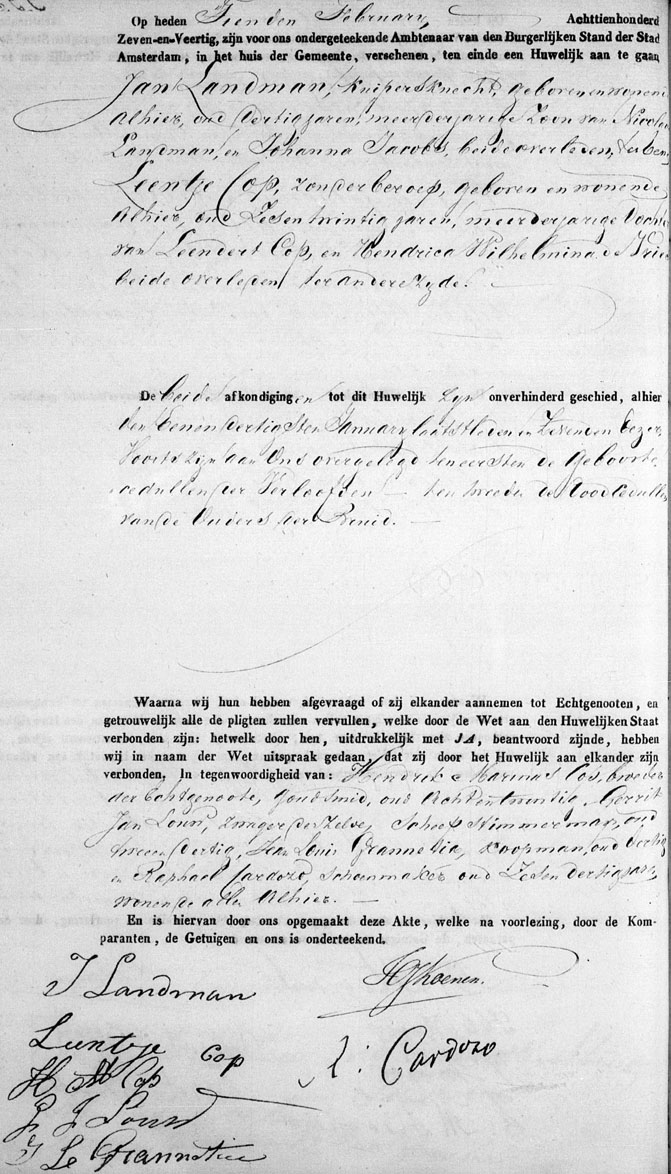 Op heden Tienden February, Achttienhonderd
Zeven-en-Veertig, zijn voor ons ondergeteekende Ambtenaar van den Burgerlijken Stand der Stad
Amsterdam, in het huis der Gemeente, verschenen, ten einde een Huwelijk aan te gaan
Jan Landman, Kuipersknecht, geboren en wonende
Alhier, oud dertig jaren, meerderjarige Zoon van Nicolaas
Landman, en Johanna Jacobs, beide overleden, ter eene
Leentje Cop, zonder beroep, geboren en wonende
Alhier, oud Zesentwintig jaren, meerderjarige Dochter
van Leendert Cop, en Hendrica Wilhelmina de
beide overleden ter andere zyde.
De beide afkondigingen tot dit Huwelijk zyn onverhinderd geschied, alhier
den Eenendertigsten January laatstleden en Zevenden dezer
Voorts zyn aan Ons overgelegd ten eersten de Geboorte
cedullen der Verloofden - ten tweede de doodcedullen
van de Ouders der Bruid. -
Waarna wij hun hebben afgevraagd of zij elkander aannemen tot Echtgenooten, en
getrouwelijk alle de pligten zullen vervullen, welke door de Wet aan den Huwelijken Staat
verbonden zijn: hetwelk door hen, uitdrukkelijk met JA, beantwoord zijnde, hebben
wij in naam der Wet uitspraak gedaan, dat zij door het Huwelijk aan elkander zijn
verbonden. In tegenwoordigheid van: Hendrik Marinus Cop, broeder
der Echtgenoote, Goudsmid, oud Achtentwintig, Gerrit
Jan zwager derzelve, Scheepstimmerman, oud
tweeendertig, Jean Louis Koopman, oud dertig
en Raphael Cardozo, Schoenmaker oud Zesendertig jaren
wonende allen Alhier. -
En is hiervan door ons opgemaakt deze Akte, welke na voorlezing, door de Kom-
paranten, de Getuigen en ons is onderteekend.
J Landman
Koenen.
Leentje Cop
R: Cardozo
H M Cop
G J
J L